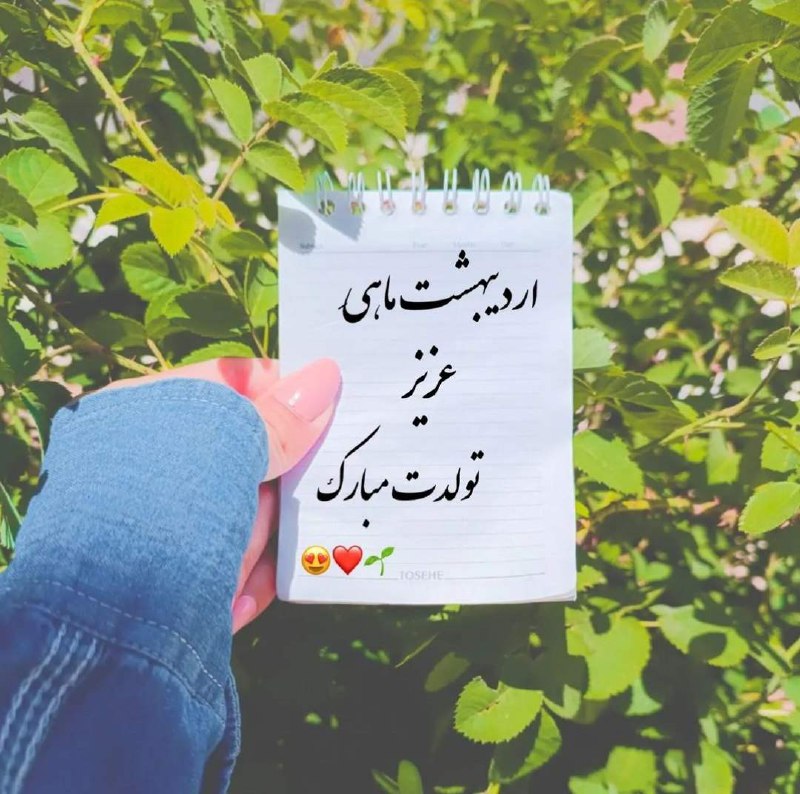 اردیبهشت ماهی
عزیز
تولدت مبارک
😍❤️🌱
TOSEHE